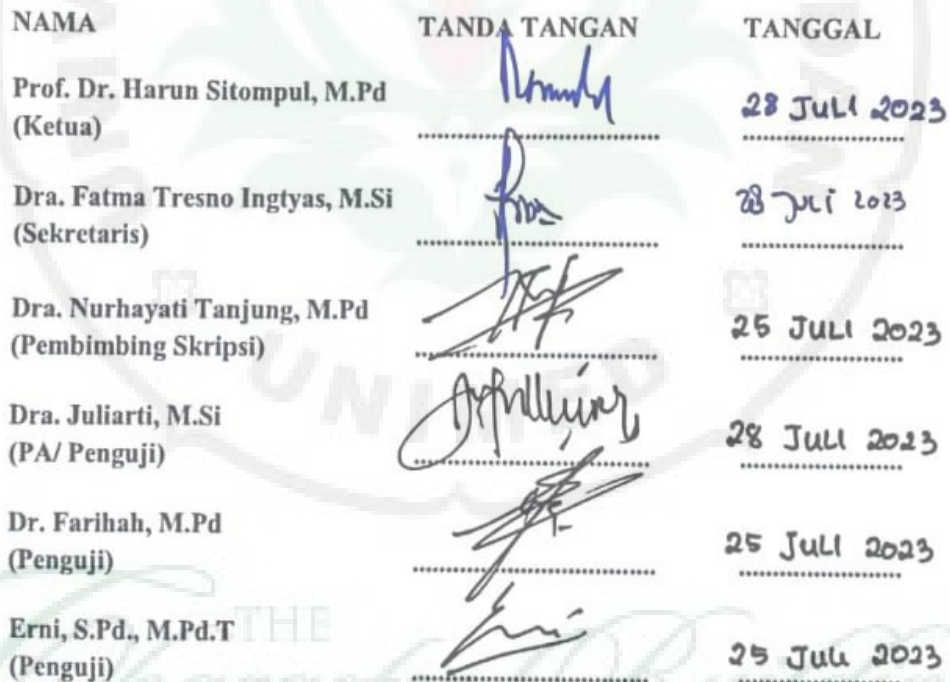 NAMA TANDA TANGAN TANGGAL
Prof. Dr. Harun Sitompul, M.Pd
(Ketua) 28 JULI 2023
Dra. Fatma Tresno Ingtyas, M.Si 28 Juli 2023
(Sekretaris)
Dra. Nurhayati Tanjung, M.Pd
(Pembimbing Skripsi) 25 JULI 2023
Dra. Juliarti, M.Si
(PA/ Penguji) 28 JULI 2023
Dr. Farihah, M.Pd
(Penguji) 25 JULI 2023
Erni, S.Pd., M.Pd.T
(Penguji) 25 Juli 2023
UNIMED
THE